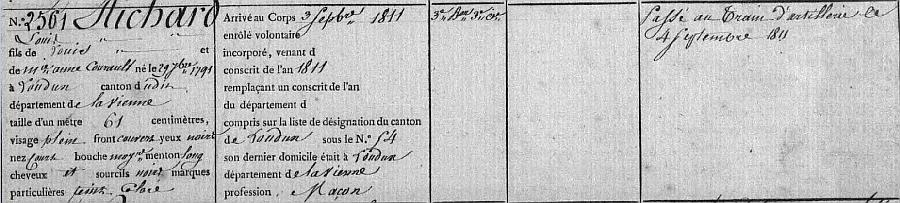 N.º 2561 Richard
Louis
fils de Louis et
de Marianne né le 29 7bre 1791
à Loudun canton d'idem
département de la Vienne
taille d'un mètre 61 centimètres,
visage plein front couvert yeux noirs
nez court bouche moyne menton long
cheveux et sourcils noirs marques
particulières teint
Arrivé au Corps 3 Septbre 1811
enrôlé volontaire
incorporé, venant d
conscrit de l'an 1811
remplaçant un conscrit de l'an
du département d
compris sur la liste de désignation du canton
de Loudun sous le N.º 54
son dernier domicile était à Loudun
département de la Vienne
profession, Maçon
3e Bon 3e Cie
Passé au Train d'artillerie le
4 Septembre 1811